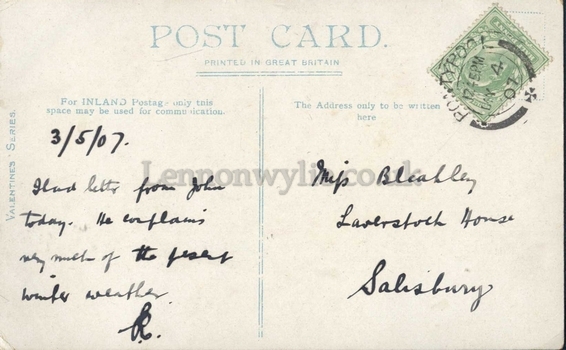 POST CARD.
PRINTED IN GREAT BRITAIN
For INLAND Postage only this
space may be used for communication.
The Address only to be written
here
VALENTINES' SERIES
3/5/07.
I had letter from John
today. He complains
very much of the present
winter weather.
R.
Miss Bleakley
Laverstock House
Salisbury
PONTYPOOL
4
07
Lennonwylie.co.uk